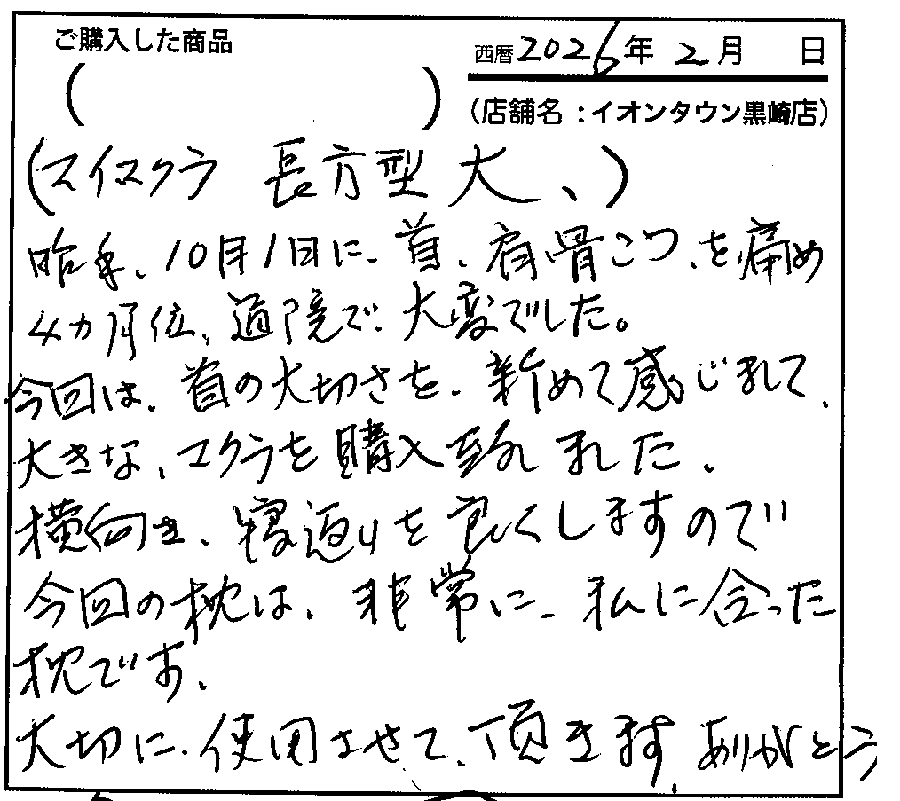 ご購入した商品
西暦2026年2月 日
( )
(店舗名:イオンタウン黒崎店)
(マイマクラ 長方型 大、)
昨年、10月1日に、首、肩、骨こつ、を痛め
4カ月位、通院で、大変でした。
今回は、首の大切さを、新めて感じまして、
大きな、マクラを購入致しました。
横向き、寝返りを良くしますので
今回の枕は、非常に、私に合った
枕です、
大切に、使用させて、頂きます、ありがとう